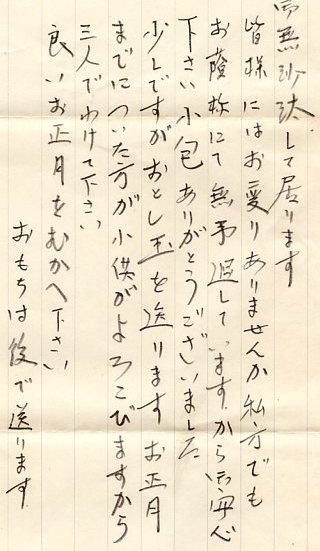 御無沙汰して居ります
皆様にはお変りありませんか私方でも
お蔭様にて無事過して居ますから御安心
下さい小包ありがとうございました
少しですがおとし玉を送ります お正月
までについた方が小供がよろこびますから
三人でわけて下さい
良いお正月をむかへ下さい
おもちは後で送ります